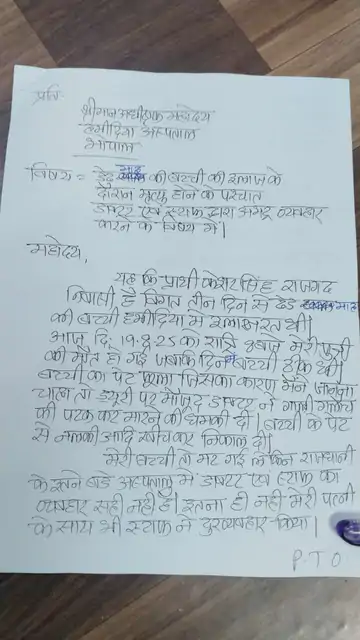 प्रति
श्रीमान अधीक्षक महोदय
हमीदिया अस्पताल
भोपाल
विषय = डेढ़ माह की बच्ची की इलाज के
दौरान मृत्यु होने के पश्चात
डाक्टर एवं स्टाफ द्वारा अभद्र व्यवहार
करने के विषय में।
महोदय,
यह कि प्रार्थी केशर सिंह राजगढ
निवासी है विगत तीन दिन से डेढ माह
की बच्ची हमीदिया में इलाजरत थी।
आज दि. 19.8.25 का रात्रि 8 बजे मेरी पुत्री
की मौत हो गई जबकि दिन में बच्ची ठीक थी।
बच्ची का पेट फूला जिसका कारण मैने जानना
चाहा तो ड्यूटी पर मौजूद डाक्टर ने गाली गलौच
की पटक कर मारने की धमकी दी। बच्ची के पेट
से नलकी आदि खींच कर निकाल दी।
मेरी बच्ची तो मर गई लेकिन राजधानी
के इतने बडे अस्पताल में डाक्टर एवं स्टाफ का
व्यवहार सही नहीं है। इतना ही नहीं मेरी पत्नी
के साथ भी स्टाफ ने दुरव्यवहार किया।
P.T.O